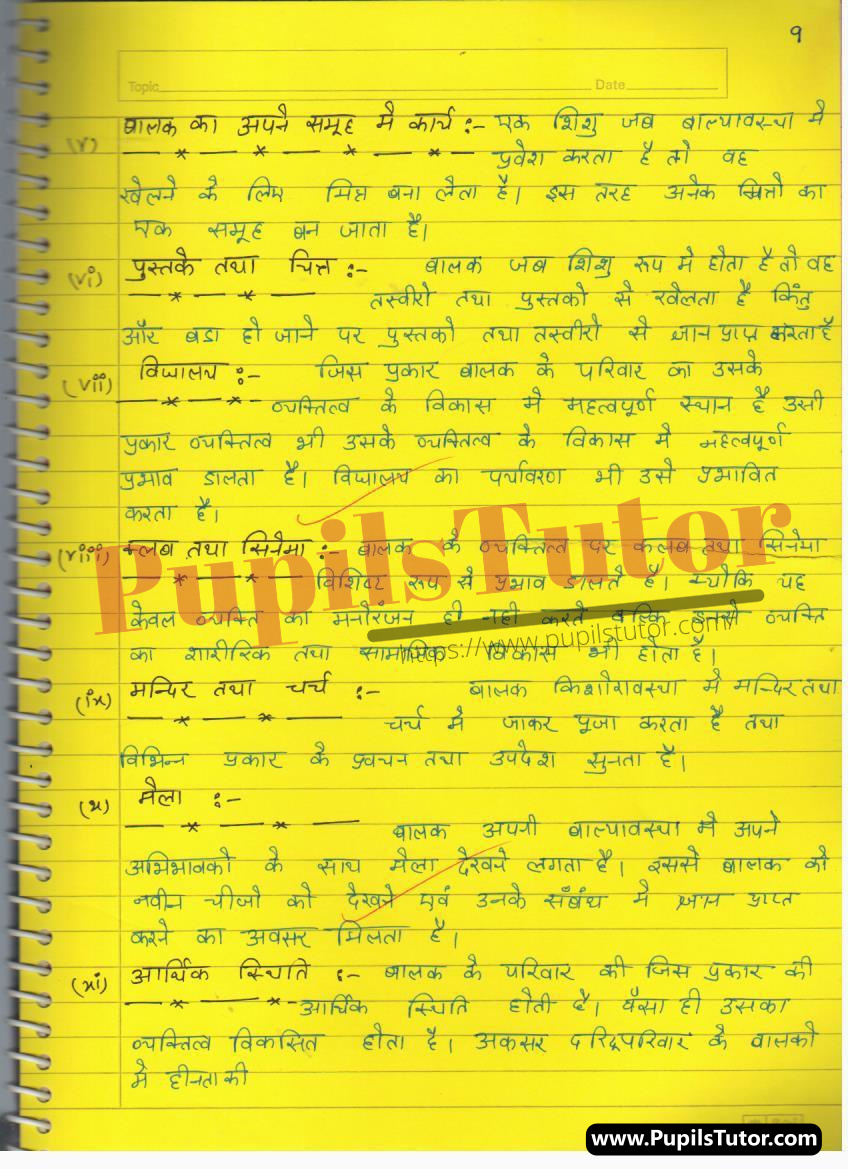 9
Topic Date
(v) बालक का अपने समूह मे कार्य :- एक शिशु जब बाल्यावस्था मे
प्रवेश करता है तो वह
खेलने के लिए मित्र बना लेता है। इस तरह अनेक मित्रो का
एक समूह बन जाता है।
(vi) पुस्तके तथा चित्र :- बालक जब शिशु रूप मे होता है तो वह
तस्वीरो तथा पुस्तको से खेलता है किंतु
और बडा हो जाने पर पुस्तको तथा तस्वीरो से ज्ञान प्राप्त करता है
(vii) विद्यालय :- जिस प्रकार बालक के परिवार का उसके
व्यक्तित्व के विकास मे महत्वपूर्ण स्थान है उसी
प्रकार व्यक्तित्व भी उसके व्यक्तित्व के विकास मे महत्वपूर्ण
प्रभाव डालता है। विद्यालय का पर्यावरण भी उसे प्रभावित
करता है।
(viii) क्लब तथा सिनेमा :- बालक के व्यक्तित्व पर कलब तथा सिनेमा
विशिष्ट रूप से प्रभाव डालते है। क्योकि यह
केवल व्यक्ति का मनोरंजन ही नही करते बल्कि इनसे व्यक्ति
का शारीरिक तथा सामाजिक विकास भी होता है।
PupilsTutor
https://www.pupilstutor.com/
(ix) मन्दिर तथा चर्च :- बालक किशोरावस्था मे मन्दिर तथा
चर्च मे जाकर पूजा करता है तथा
विभिन्न प्रकार के प्रवचन तथा उपदेश सुनता है।
(x) मेला :-
बालक अपनी बाल्यावस्था मे अपने
अभिभावको के साथ मेला देखने लगता है। इससे बालक को
नवीन चीजो को देखने एवं उनके संबंध मे ज्ञान प्राप्त
करने का अवसर मिलता है।
(xi) आर्थिक स्थिति :- बालक के परिवार की जिस प्रकार की
आर्थिक स्थिति होती है। वैसा ही उसका
व्यक्तित्व विकसित होता है। अकसर दरिद्र परिवार के बालको
मे हीनता की
www.PupilsTutor.com